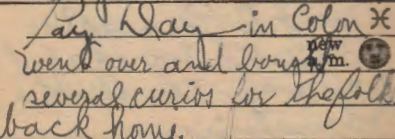 Pay Day in Colon ♓
went over and bought new a.m.
several curios for the folk
back home.